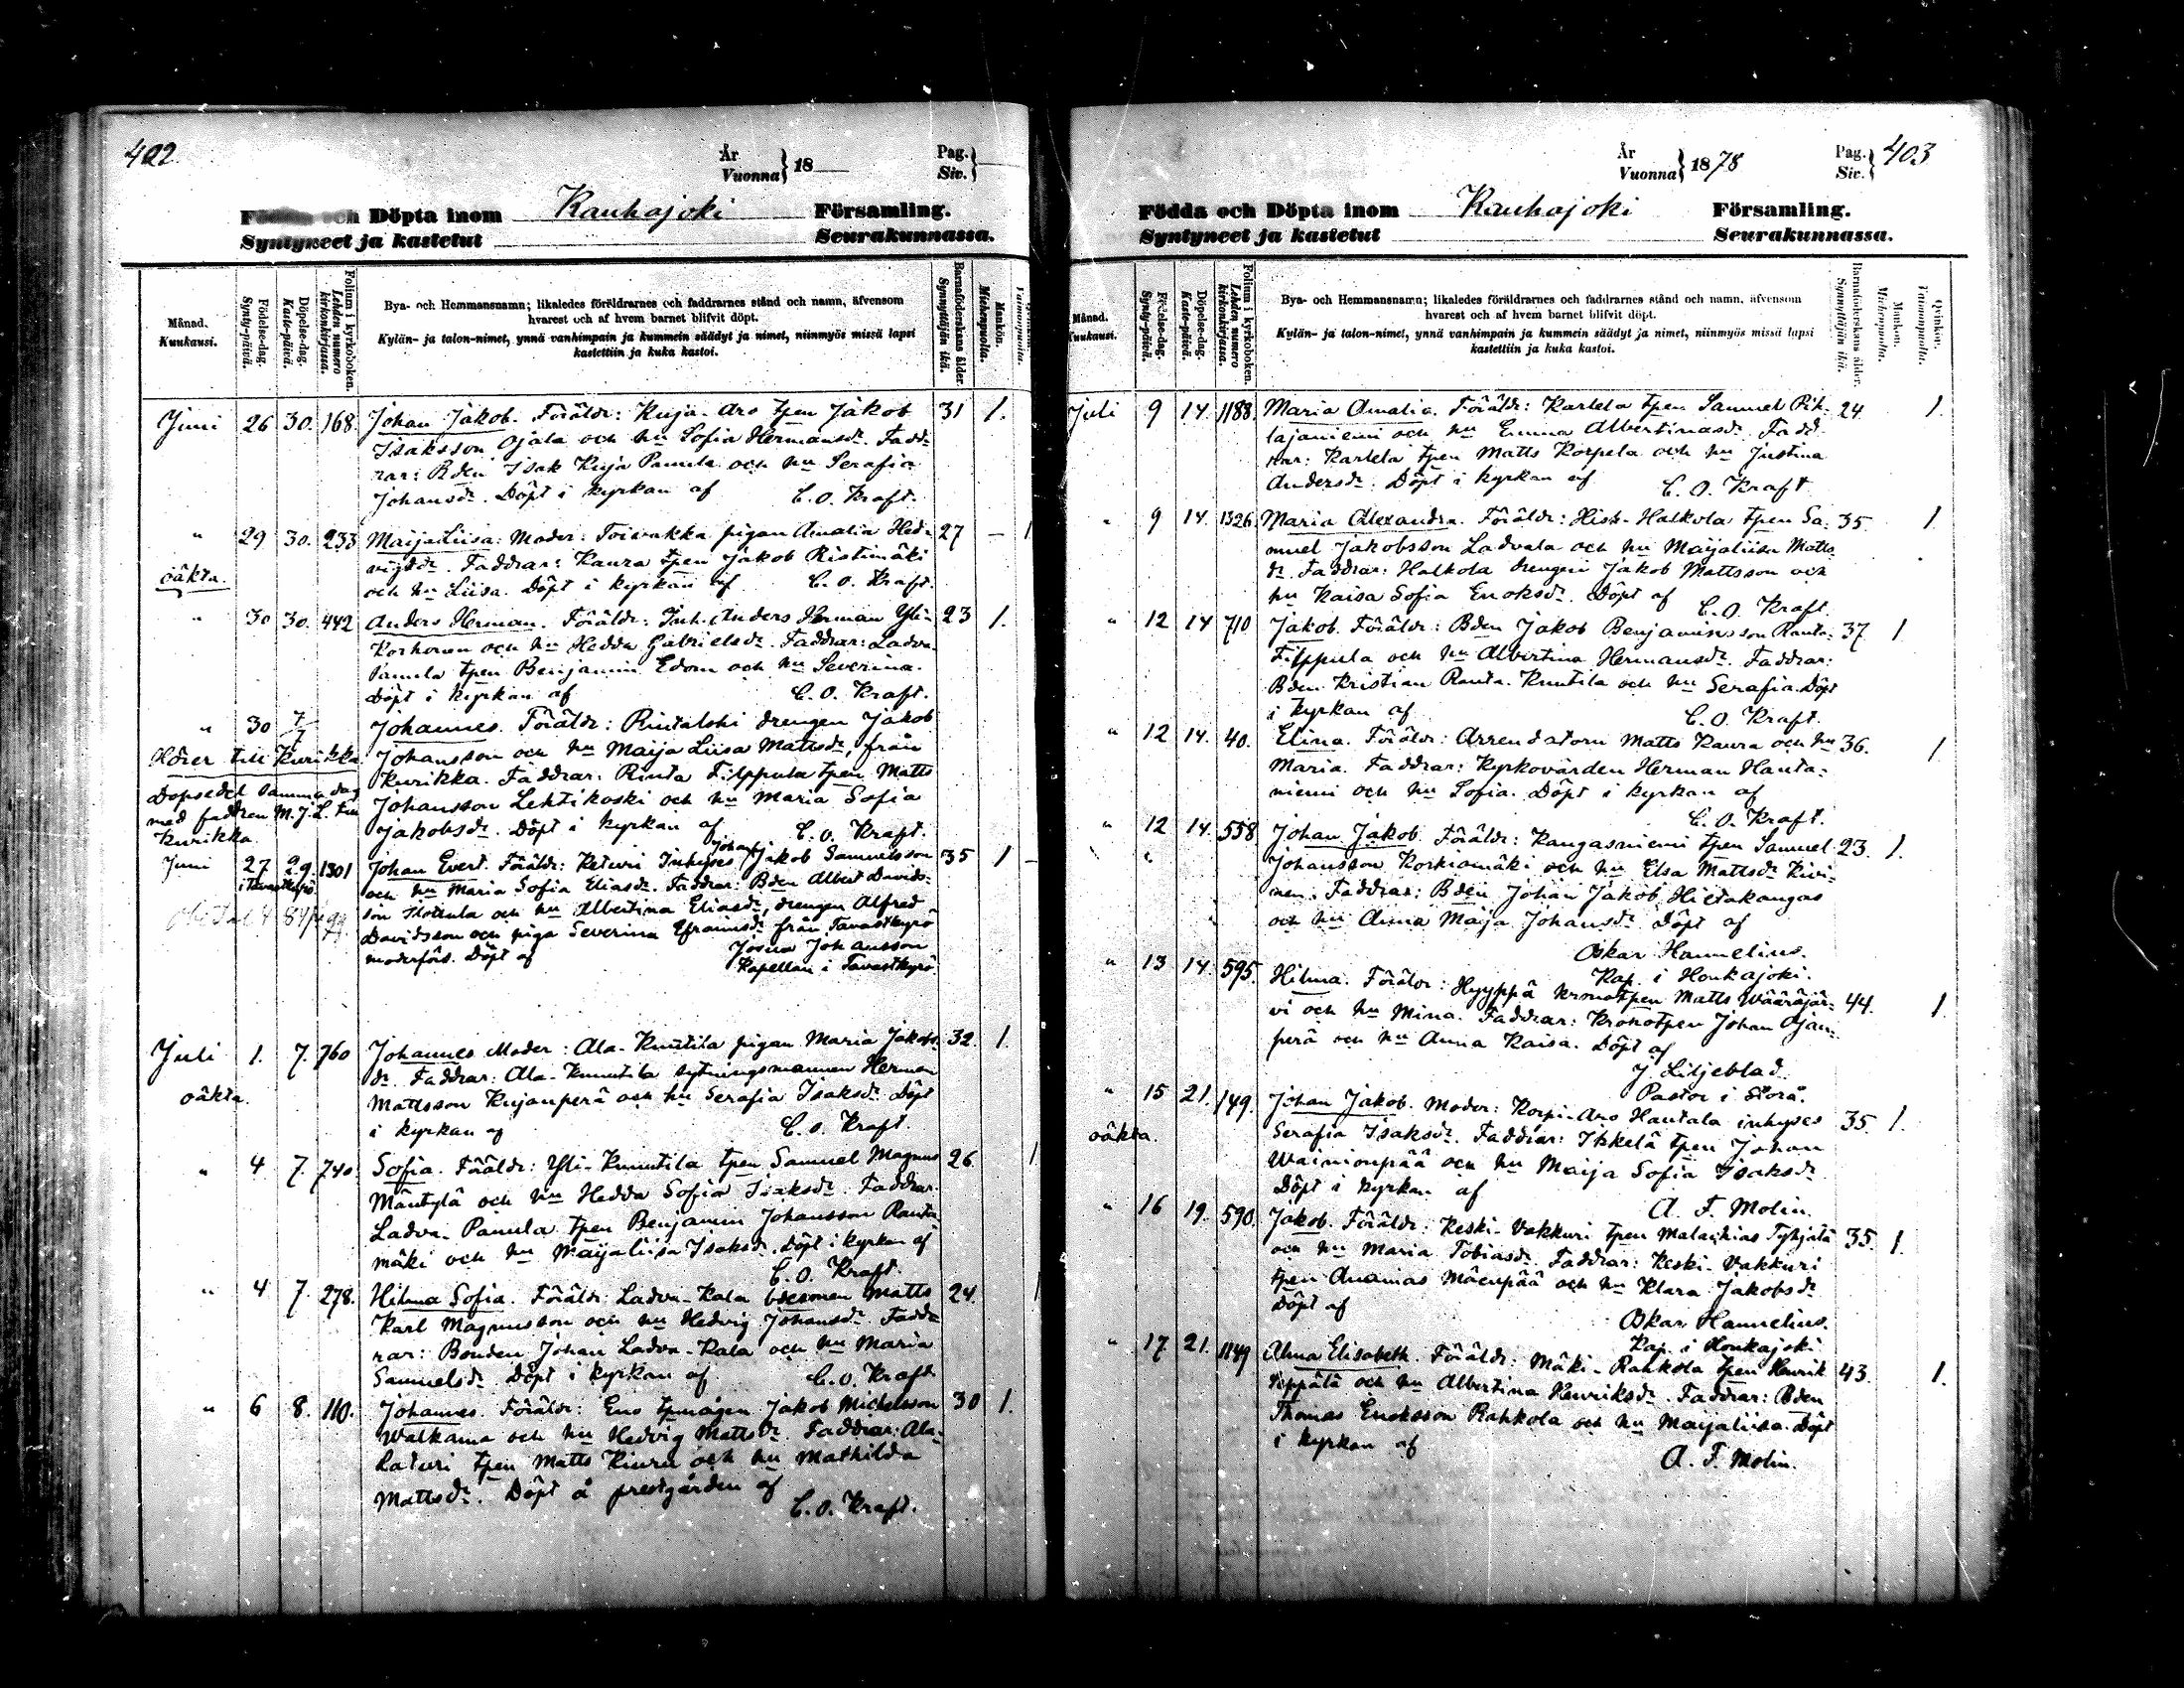 402
År
Vuonna } 18
Pag.
Siv. }
Födda och Döpta inom Kauhajoki Församling.
Syntyneet ja kastetut Seurakunnassa.
Månad.
Kuukausi.
Födelse-dag.
Synty-päivä.
Döpelse-dag.
Kaste-päivä.
Folium i kyrkoboken.
Lehden numero
kirkonkirjassa.
Bya- och Hemmansnamn; likaledes föräldrarnes och faddrarnes stånd och namn, äfvensom
hvarest och af hvem barnet blifvit döpt.
Kylän- ja talon-nimet, ynnä vanhimpain ja kummein säädyt ja nimet, niinmyös missä lapsi
kastettiin ja kuka kastoi.
Barnaföderskans ålder.
Synnyttäjän ikä.
Mankön.
Miehenpuolta.
Juni 26 30. 168. Johan Jakob. Föräldr: Kuja-Aro tpen Jakob 31 1.
Isaksson Ojala och hu Sofia Hermansdr. Fadd-
rar: Bden Isak Kuja Panula och hu Serafia
Johansdr. Döpt i kyrkan af C. O. Kraft.
" 29 30. 233 Maijaliisa: Moder: Toivakka pigan Amalia Hed- 27 – 1
vigsdr. Faddrar: Kaura tpen Jakob Ristimäki
oäkta. och hu Liisa. Döpt i kyrkan af C. O. Kraft.
" 30 30. 442 Anders Herman. Föräldr: Inh. Anders Herman Yli- 23 1.
Korhonen och hu Hedda Gabrielsdr. Faddrar: Ladva
Panula tpen Benjamin Edom och hu Severina.
Döpt i kyrkan af C. O. Kraft.
" 30 7/7 Johannes. Föräldr: Rintaloski drengen Jakob
Hörer till Kurikka. Johansson och hu Maija Liisa Mattsdr, från
Kurikka. Faddrar: Rinta Filppula tpen Matts
Dopsedel samma dag Johansson Lehtikoski och hu Maria Sofia
med faddren M. J. L. till Jakobsdr. Döpt i kyrkan af C. O. Kraft.
Kurikka.
Juni 27 29. 1301 Johan Evert. Föräldr: Keturi Inhyses Johan Jakob Samuelsson 35 1 –
i Tavastkyrö och hu Maria Sofia Eliasdr. Faddrar: Bden Albert Davids-
son och hu Albertina Eliasdr, drengen Alfred
Davidsson och piga Severina Efraimsdr från Tavastkyrö
moderförs. Döpt af Josua Johansson
Kapellan i Tavastkyrö.
Juli 1. 7. 760 Johannes Moder: Ala-Knuutila pigan Maria Jakobs- 32. 1.
dr. Faddrar: Ala-Knuutila sytningsmannen Herman
oäkta. Mattsson Kujanperä och hu Serafia Isaksdr. Döpt
i kyrkan af C. O. Kraft.
" 4 7. 740. Sofia. Föräldr: Yli-Knuutila tpen Samuel Magnus 26 1
Mäntylä och hu Hedda Sofia Isaksdr. Faddrar.
Ladva-Panula tpen Benjamin Johansson Ranta
mäki och hu Maijaliisa Isaksdr. Döpt i kyrkan af
C. O. Kraft.
" 4 7. 278. Hilma Sofia. Föräldr: Ladva-Kala bdesonen Matts 24. 1
Karl Magnusson och hu Hedvig Johansdr. Fadd-
rar: Bonden Johan Ladva-Kala och hu Maria
Samuelsdr. Döpt i kyrkan af C. O. Kraft
" 6 8. 110. Johannes. Föräldr: Eno tpmågen Jakob Michelsson 30 1.
Walkama och hu Hedvig Mattsdr. Faddrar: Ala-
Laturi tpen Matts Kiura och hu Mathilda
Mattsdr. Döpt å prestgården af
C. O. Kraft.
År
Vuonna } 1878
Pag.
Siv. } 403
Födda och Döpta inom Kauhajoki Församling.
Syntyneet ja kastetut Seurakunnassa.
Månad.
Kuukausi.
Födelse-dag.
Synty-päivä.
Döpelse-dag.
Kaste-päivä.
Folium i kyrkoboken.
Lehden numero
kirkonkirjassa.
Bya- och Hemmansnamn; likaledes föräldrarnes och faddrarnes stånd och namn, äfvensom
hvarest och af hvem barnet blifvit döpt.
Kylän- ja talon-nimet, ynnä vanhimpain ja kummein säädyt ja nimet, niinmyös missä lapsi
kastettiin ja kuka kastoi.
Barnaföderskans ålder.
Synnyttäjän ikä.
Mankön.
Miehenpuolta.
Qvinkön.
Vaimonpuolta.
Juli 9 14. 1188. Maria Amalia. Föräldr: Karlela tpen Samuel Pih- 24. 1.
lajaniemi och hu Emma Albertinasdr. Fadd-
rar: Karlela tpen Matts Korpela och hu Justina
Andersdr. Döpt i kyrkan af C. O. Kraft
" 9 14. 1326. Maria Alexandra. Föräldr: Hist-Halkola tpen Sa- 35. 1.
muel Jakobsson Ladvala och hu Maijaliisa Matts
dr. Faddrar: Halkola drengen Jakob Mattsson och
hu Kaisa Sofia Enoksdr. Döpt af C. O. Kraft.
" 12 14 710 Jakob. Föräldr: Bden Jakob Benjaminsson Ranta- 37. 1.
Filppula och hu Albertina Hermansdr. Faddrar:
Bden Kristian Ranta-Knutila och hu Serafia. Döpt
i kyrkan af C. O. Kraft.
" 12 14. 40. Elina. Föräldr: Arrendatorn Matts Kaura och hu 36. 1
Maria. Faddrar: Kyrkovärden Herman Hanta-
niemi och hu Sofia. Döpt i kyrkan af
C. O. Kraft.
" 12 14. 558 Johan Jakob. Föräldr: Kangasniemi tpen Samuel 23. 1.
Johansson Korkiamäki och hu Elsa Mattsdr Kivi-
nen. Faddrar: Bden Johan Jakob Hietakangas
och hu Anna Maija Johansdr. Döpt af
Oskar Hannelius.
Kap. i Honkajoki.
" 13 14. 595. Hilma. Föräldr: Hyyppä kronotpen Matts Wääräjär- 44. 1
vi och hu Mina. Faddrar: Kronotpen Johan Ojan-
perä och hu Anna Kaisa. Döpt af
J. Liljeblad.
Pastor i Storå.
" 15 21. 149. Johan Jakob. Moder: Korpi-Aro Hautala inhyses 35. 1.
oäkta. Serafia Isaksdr. Faddrar: Ikkelä tpen Johan
Wainionpää och hu Maija Sofia Isaksdr.
Döpt i kyrkan af A. F. Molin.
" 16 19. 590. Jakob. Föräldr: Keski-Vakkuri tpen Malachias Tyhjälä 35. 1.
och hu Maria Tobiasdr. Faddrar: Keski-Vakkuri
tpen Ananias Mäenpää och hu Klara Jakobsdr
Döpt af Oskar Hannelius.
Kap. i Honkajoki
" 17 21. 1149 Alma Elisabeth. Föräldr: Mäki-Rahkola tpen Henrik 43. 1.
Seppälä och hu Albertina Henriksdr. Faddrar: Bden
Thomas Enoksson Rahkola och hu Maijaliisa. Döpt
i kyrkan af A. F. Molin.